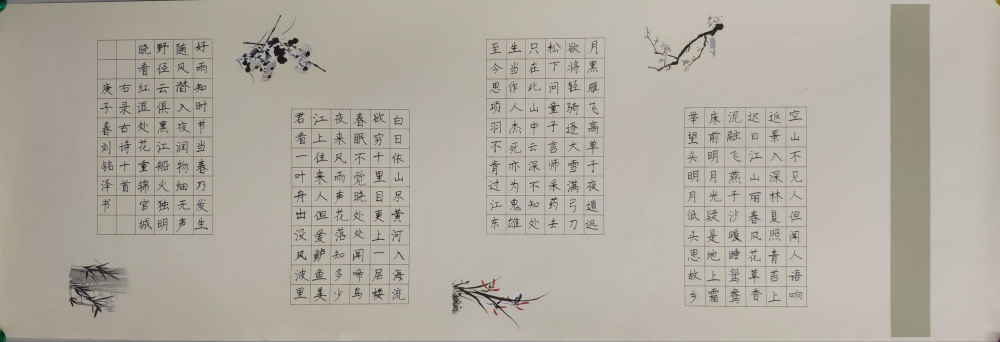 空山不见人但闻人语响
返景入深林复照青苔上
迟日江山丽春风花草香
泥融飞燕子沙暖睡鸳鸯
床前明月光疑是地上霜
举望头明月低头思故乡
月黑雁飞高单于夜遁逃
欲将轻骑逐大雪满弓刀
松下问童子言师采药去
只在此山中云深不知处
生当作人杰死亦为鬼雄
至今思项羽不肯过江东
白日依山尽黄河入海流
欲穷千里目更上一层楼
春眠不觉晓处处闻啼鸟
夜来风雨声花落知多少
江上往来人但爱鲈鱼美
君看一叶舟出没风波里
好雨知时节当春乃发生
随风潜入夜润物细无声
野径云俱黑江船火独明
晓看红湿处花重锦官城
右录古诗十首
庚子春刘铭泽书